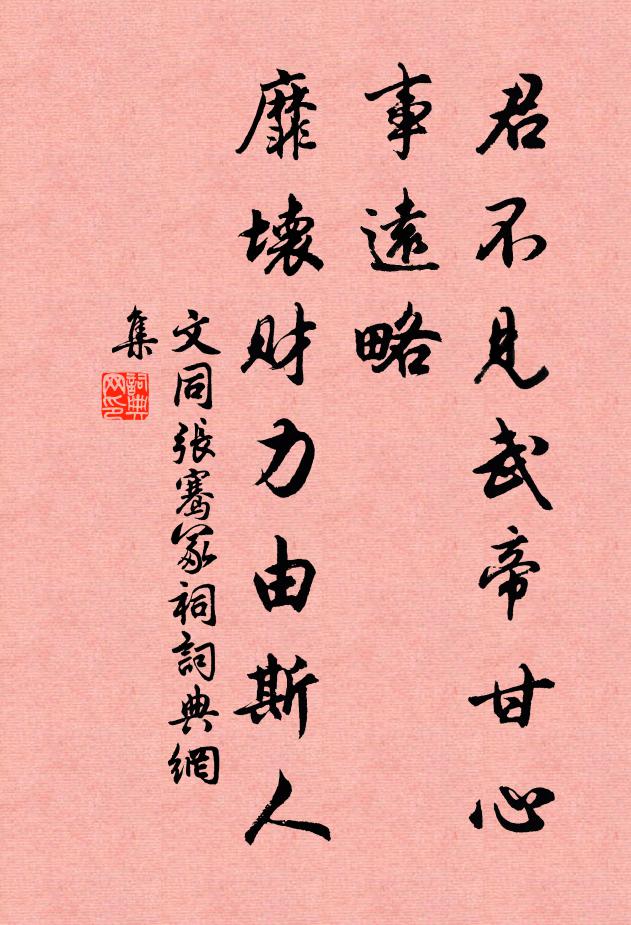 君不見武帝甘心
事遠略
靡壞财力由斯人
文同張騫冢祠詞典網
集
詞典
网印